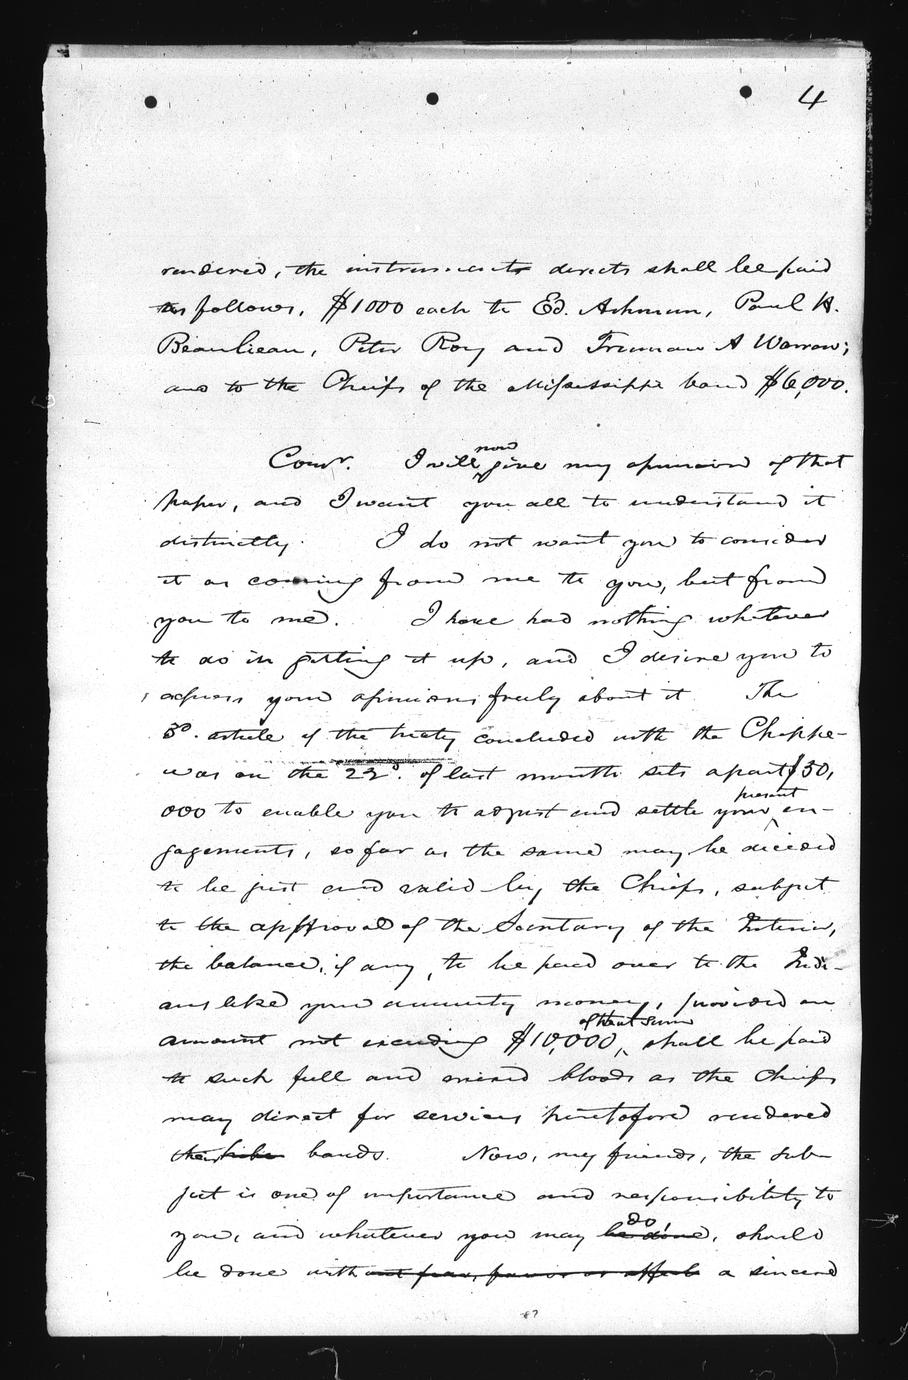 4
rendered, the instrument directs shall be paid
as follows, $1000 each to Ed. Ashmun, Paul H.
Beaulieau, Peter Roy and Truman A Warren;
and to the Chiefs of the Mississippi band $6,000.
Comr. I will now give my opinion of that
paper, and I want you all to understand it
distinctly. I do not want you to consider
it as coming from me to you, but from
you to me. I have had nothing whatever
to do in getting it up, and I desire you to
express your opinions freely about it The
3d. article of the treaty concluded with the Chippe-
was on the 22d. of last month sets apart $50,
000 to enable you to adjust and settle your present en-
gagements, so far as the same may be decided
to be just and valid by the Chiefs, subject
to the approval of the Secretary of the Interior,
the balance, if any, to be paid over to the Indi-
ans like your annuity money, provided an
amount not exceeding $10,000, of that sum shall be paid
to such full and mixed bloods as the chiefs
may direct for services heretofore rendered
their tribe bands. Now, my friends, the sub-
ject is one of importance and responsibility to
you, and whatever you may be done, do, should
be done without fear, favor or affect a sincere